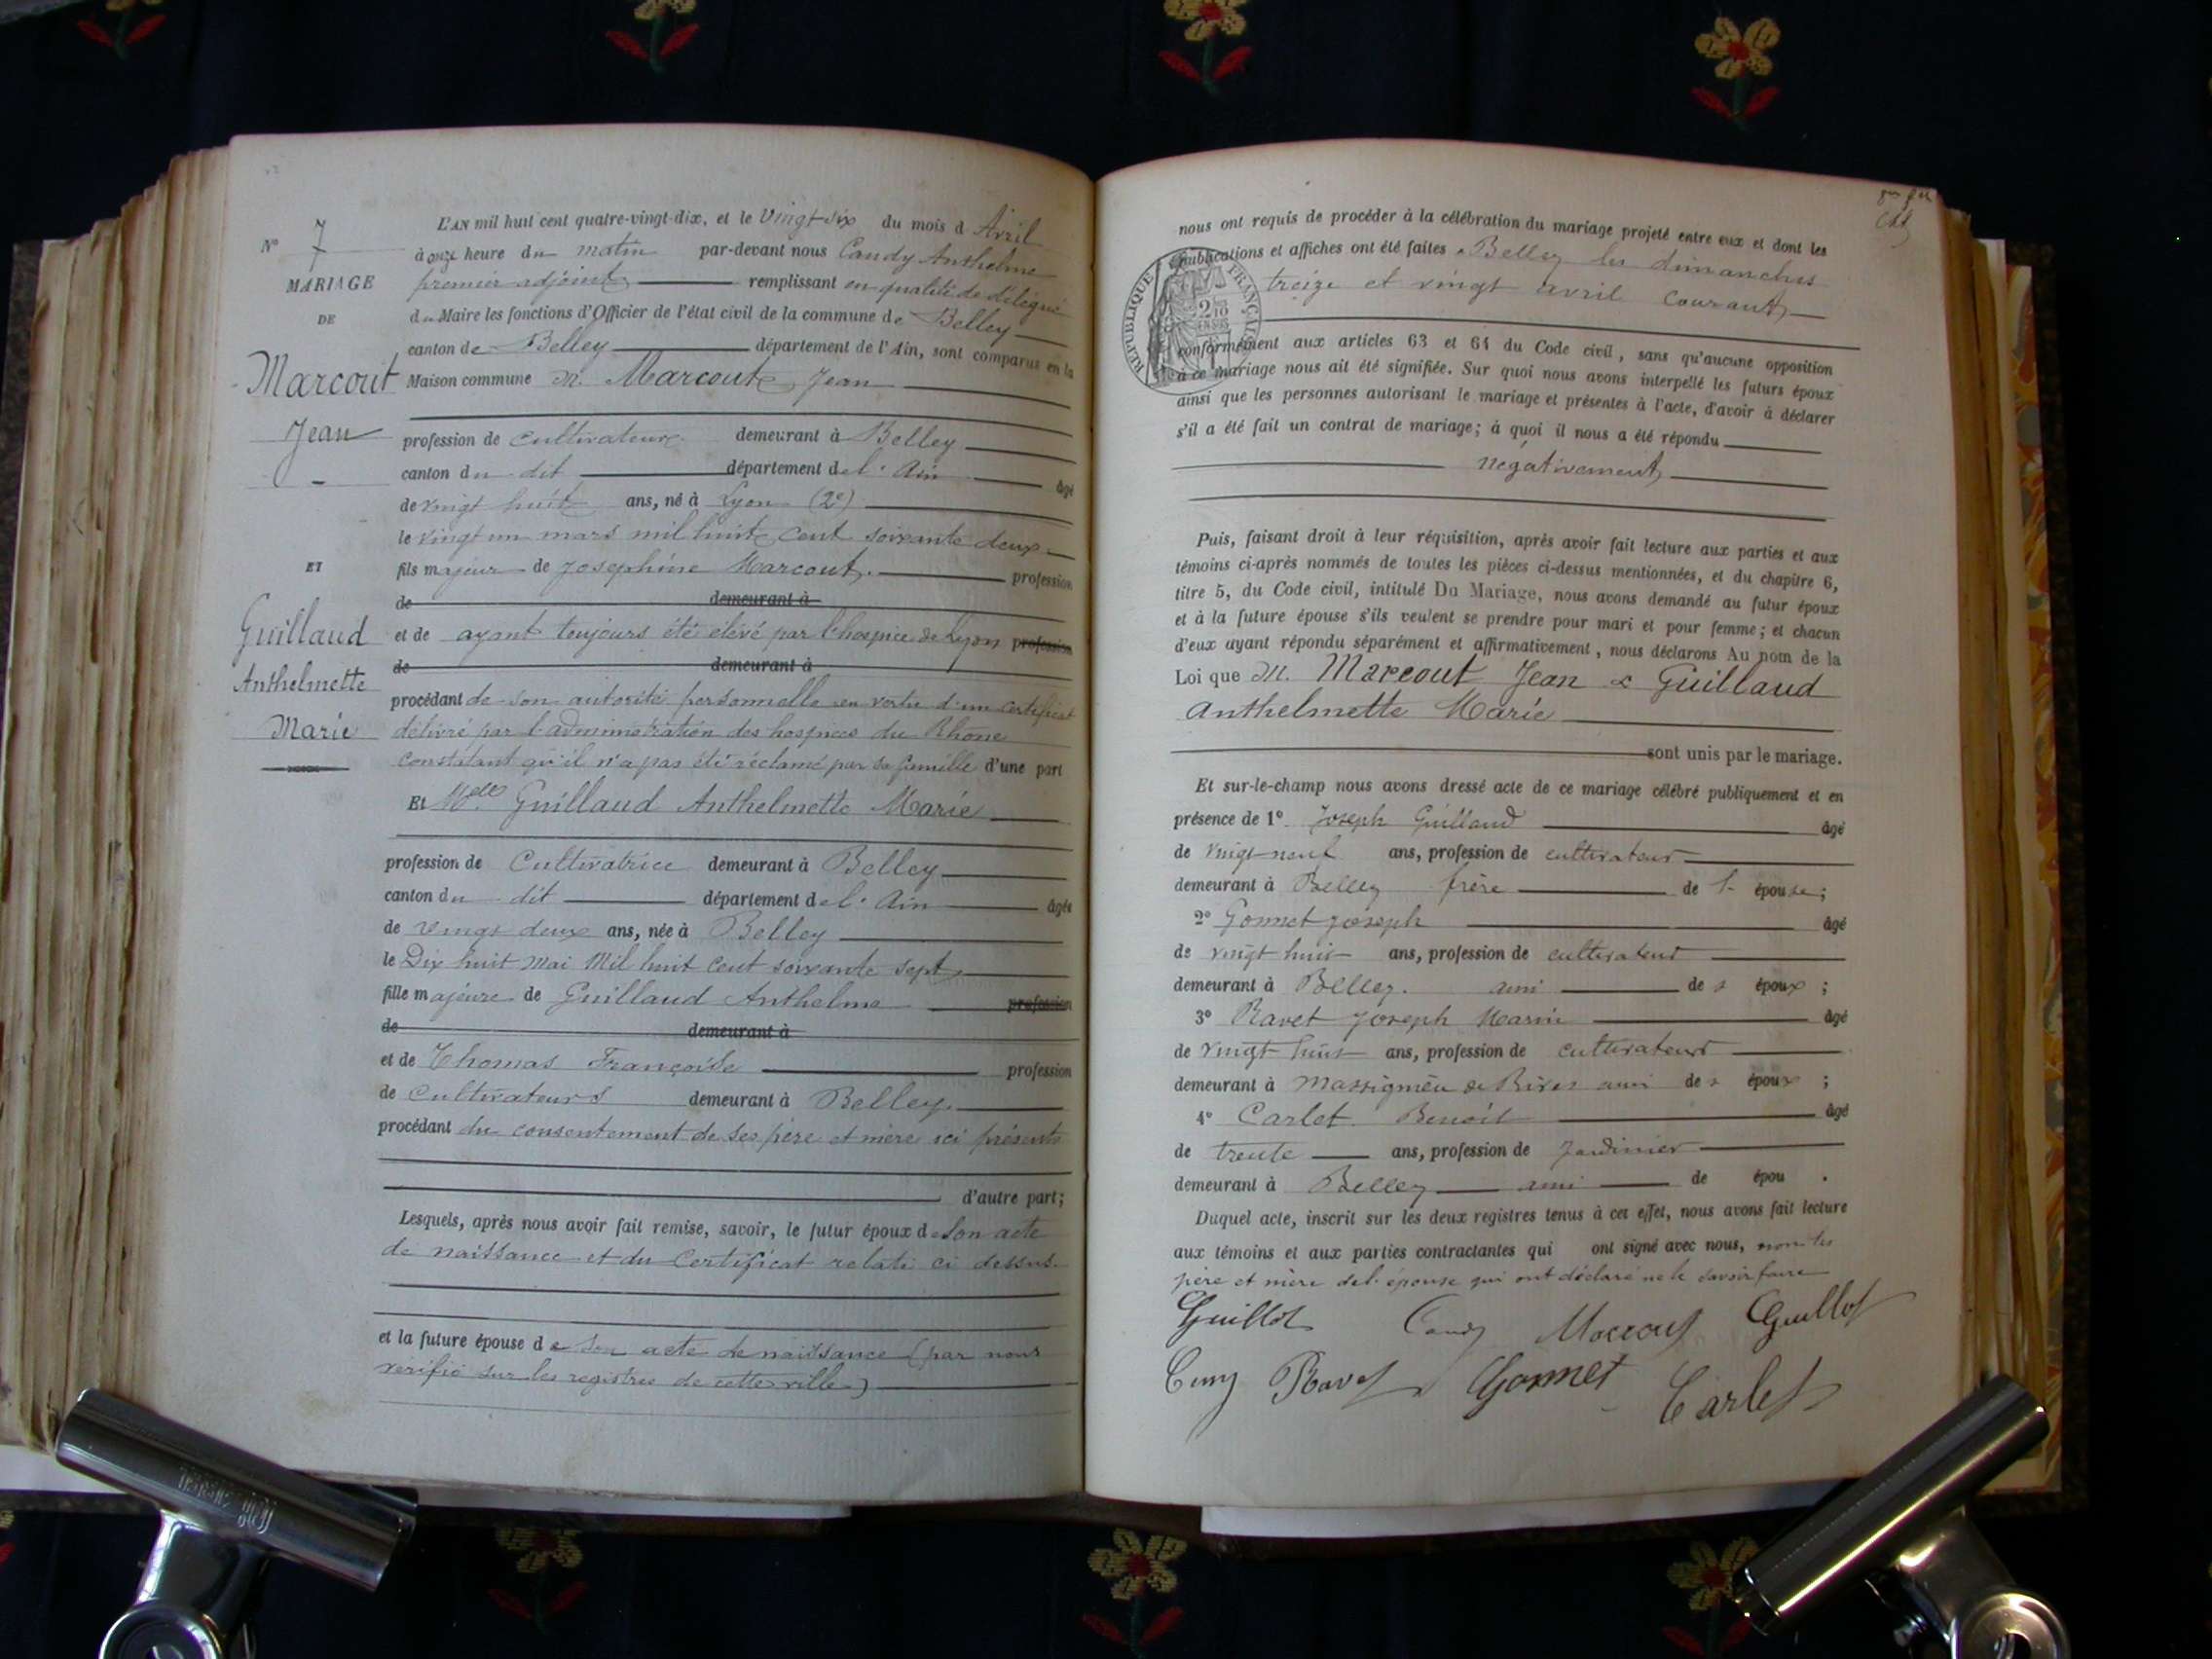 N° 7
MARIAGE
DE
Marcout
Jean
ET
Guillaud
Anthelmette
Marie
L'AN mil huit cent quatre-vingt-dix, et le vingt-six du mois d Avril
à onze heure du matin par-devant nous Candy Anthelme
premier adjoint remplissant en qualité de délégué
du Maire les fonctions d'Officier de l'état civil de la commune de Belley
canton de Belley département de l'Ain, sont comparus en la
Maison commune M. Marcout Jean
profession de cultivateur demeurant à Belley
canton du dit département de l'Ain âgé
de vingt huit ans, né à Lyon (2e)
le vingt un mars mil huit cent soixante deux
fils majeur de Joséphine Marcout profession
de demeurant à
et de ayant toujours été élevé par l'hospice de Lyon profession
de demeurant à
procédant de son autorité personnelle en vertu d'un certificat
délivré par l'administration des hospices du Rhône
constatant qu'il n'a pas été réclamé par sa famille d'une part
Et Melle Guillaud Anthelmette Marie
profession de Cultivatrice demeurant à Belley
canton du dit département de l'Ain âgée
de vingt deux ans, née à Belley
le Dix huit Mai Mil huit cent soixante sept
fille majeure de Guillaud Anthelme profession
de demeurant à
et de Thomas Françoise profession
de cultivateurs demeurant à Belley
procédant du consentement de ses père et mère ici présents
d'autre part;
Lesquels, après nous avoir fait remise, savoir, le futur époux de son acte
de naissance et du Certificat relaté ci dessus
et la future épouse de son acte de naissance (par nous
vérifié sur les registres de cette ville)
nous ont requis de procéder à la célébration du mariage projeté entre eux et dont les
publications et affiches ont été faites à Belley les dimanches
treize et vingt avril courant
RÉPUBLIQUE FRANÇAISE
conformément aux articles 63 et 64 du Code civil, sans qu'aucune opposition
à ce mariage nous ait été signifiée. Sur quoi nous avons interpellé les futurs époux
ainsi que les personnes autorisant le mariage et présentes à l'acte, d'avoir à déclarer
s'il a été fait un contrat de mariage; à quoi il nous a été répondu
négativement
Puis, faisant droit à leur réquisition, après avoir fait lecture aux parties et aux
témoins ci-après nommés de toutes les pièces ci-dessus mentionnées, et du chapitre 6,
titre 5, du Code civil, intitulé Du Mariage, nous avons demandé au futur époux
et à la future épouse s'ils veulent se prendre pour mari et pour femme; et chacun
d'eux ayant répondu séparément et affirmativement, nous déclarons Au nom de la
Loi que M. Marcout Jean & Guillaud
Anthelmette Marie
sont unis par le mariage.
Et sur-le-champ nous avons dressé acte de ce mariage célébré publiquement et en
présence de 1° Joseph Guillaud âgé
de vingt-neuf ans, profession de cultivateur
demeurant à Belley frère de l' épouse;
2° Gonnet Joseph âgé
de vingt huit ans, profession de cultivateur
demeurant à Belley. ami de s époux;
3° Ravet Joseph Marin âgé
de vingt huit ans, profession de cultivateur
demeurant à Massignieu de Rives ami de s époux;
4° Carlet Benoit âgé
de trente ans, profession de Jardinier
demeurant à Belley ami de épou .
Duquel acte, inscrit sur les deux registres tenus à cet effet, nous avons fait lecture
aux témoins et aux parties contractantes qui ont signé avec nous, non les
père et mère de l'épouse qui ont déclaré ne le savoir faire
Guillot Candy Marcout Guillot
Cuny Ravet Gonnet Carlet